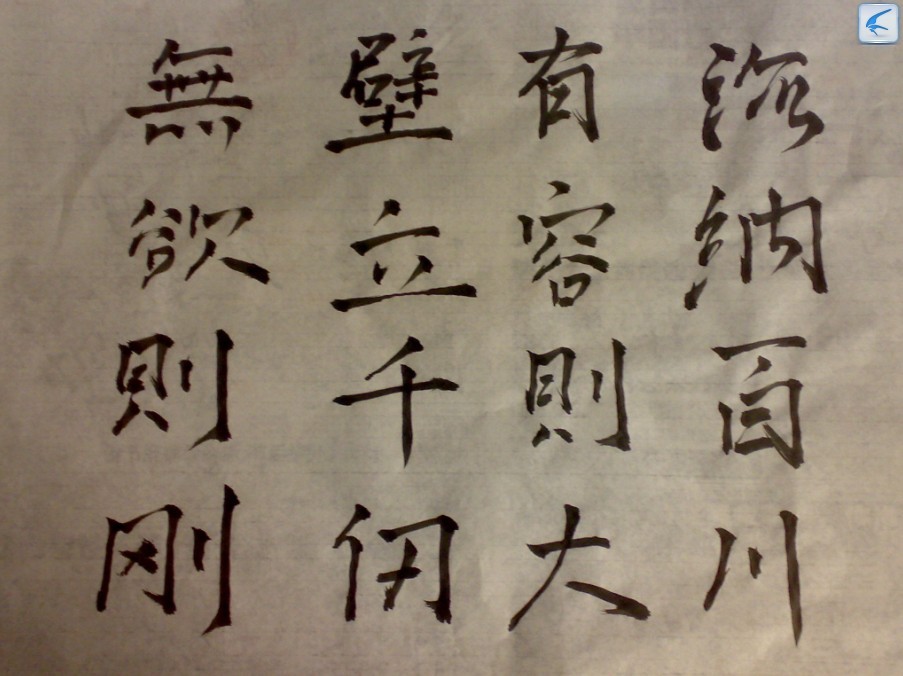 海納百川
有容則大
壁立千仞
無欲則刚